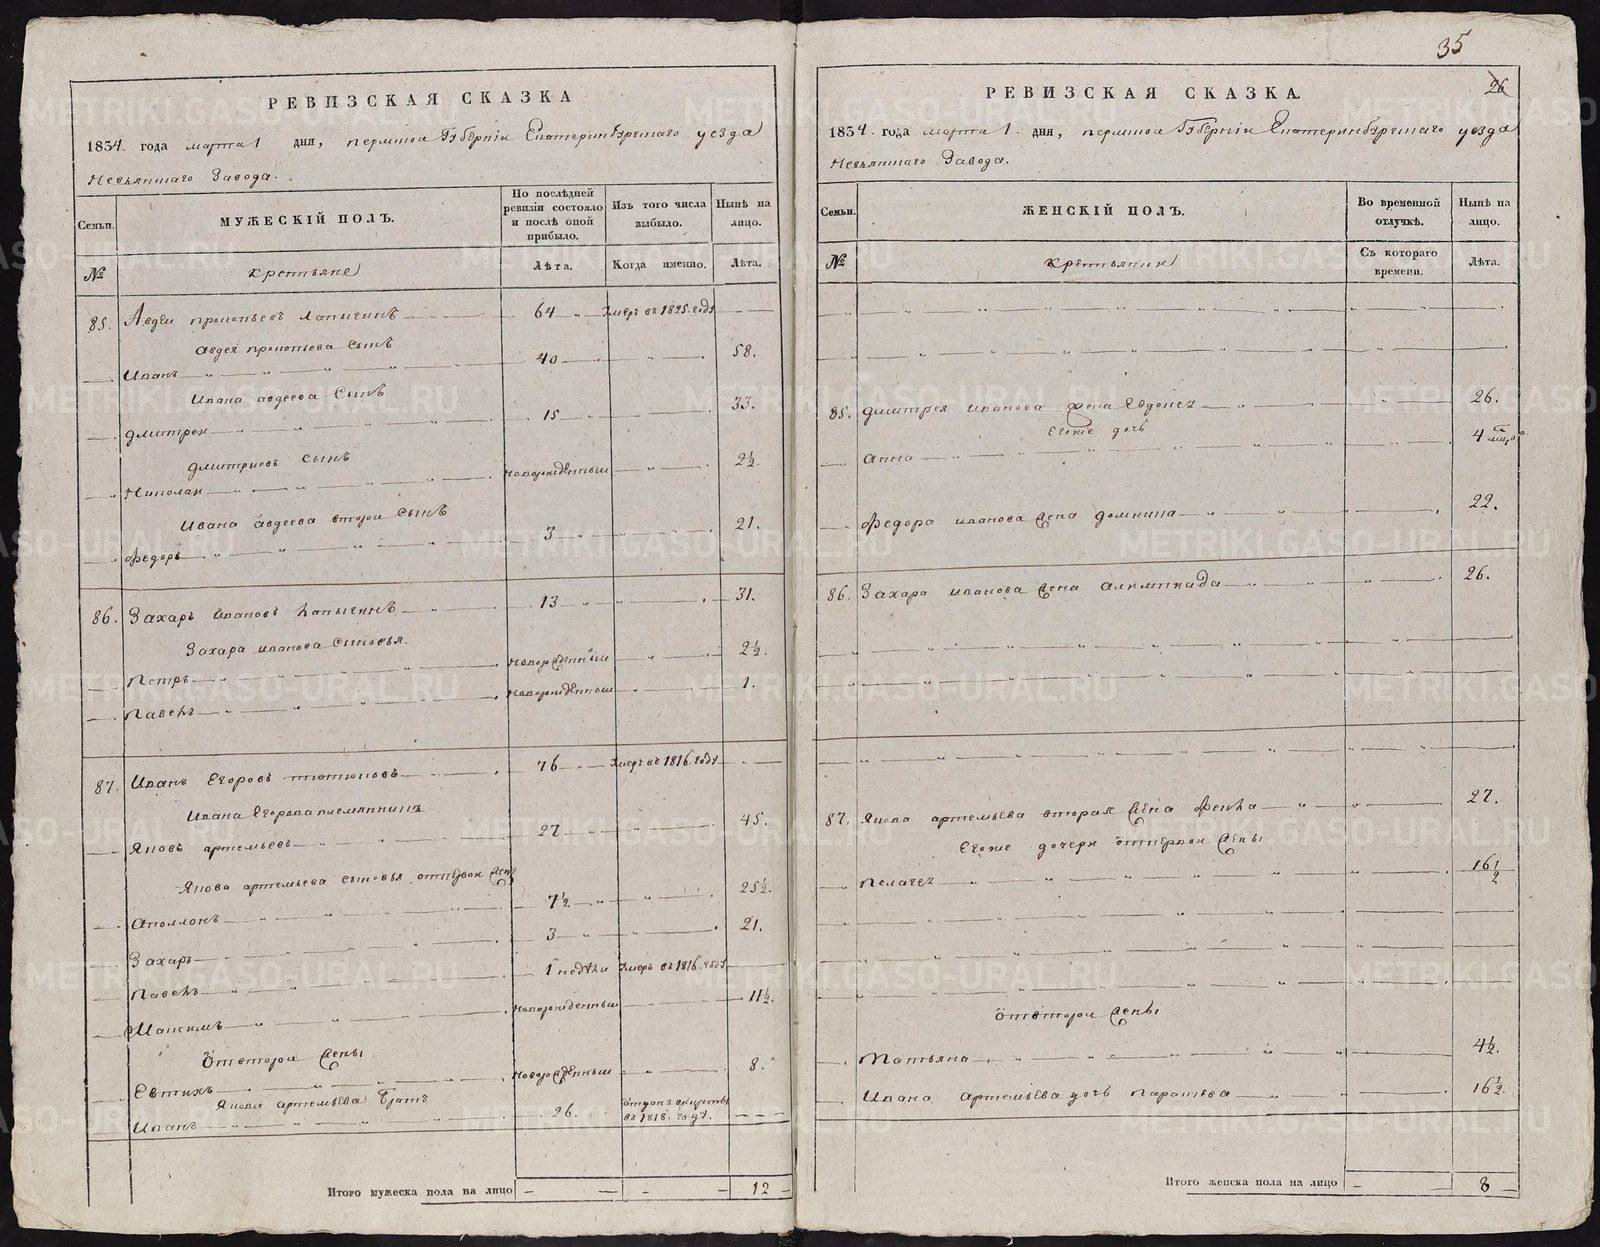 35
РЕВИЗСКАЯ СКАЗКА
1834. года марта 1 дня, пермской Губерніи Екатеринбургскаго уезда
Невьянскаго Завода.
Семьи.
МУЖЕСКІЙ ПОЛЪ.
По послѣдней ревизіи состояло и послѣ оной прибыло.
Изъ того числа выбыло.
Нынѣ на лицо.
№
крестьяне
Лѣта.
Когда именно.
Лѣта.
85. Авдей прокопьевъ Лапычинъ 64 Умеръ въ 1825. году
Авдея прокопьева сынъ
Иванъ 40 58.
Ивана авдеева сынъ
дмитрей 15 33.
дмитриевъ сынъ
Николай новорожденный 2½.
Ивана авдеева второй сынъ
Федоръ 3 21.
86. Захаръ ивановъ Лапычинъ 13 31.
Захара иванова сыновья.
Петръ новорожденный 2½.
Павелъ новорожденный 1.
87. Иванъ Егоровъ тютюковъ 76 Умеръ въ 1816. году
Ивана Егорова племянникъ
Яковъ артемьевъ 27 45.
Якова артемьева сыновья отпервой жены
Аполлонъ 7½ 25½.
Захаръ 3 21.
Павелъ 1 недѣли Умеръ въ 1816. году
Максимъ новорожденный 11½.
Отвторой жены
Евтихъ новорожденный 8.
Якова артемьева братъ
Иванъ 26. отданъ врекруты въ 1818. году.
Итого мужеска пола на лицо 12
РЕВИЗСКАЯ СКАЗКА.
26
1834. года марта 1. дня, пермской Губерніи Екатеринбургскаго уезда
Невьянскаго Завода.
Семьи.
ЖЕНСКІЙ ПОЛЪ.
Во временной отлучкѣ.
Нынѣ на лицо.
№
крестьянки
Съ котораго времени.
Лѣта.
85. дмитрея иванова жена Евдокея 26.
Егоже дочь
анна 4
Федора иванова жена домнина 22.
86. Захара иванова жена алимпиада 26.
87. Якова артемьева вторая жена Фекла 27.
Егоже дочери отпервой жены
пелагея 16½
Отвторой жены
Татьяна 4½.
Ивана Артемьева дочь парасковья 16½.
Итого женска пола на лицо 8
METRIKI.GASO-URAL.RU